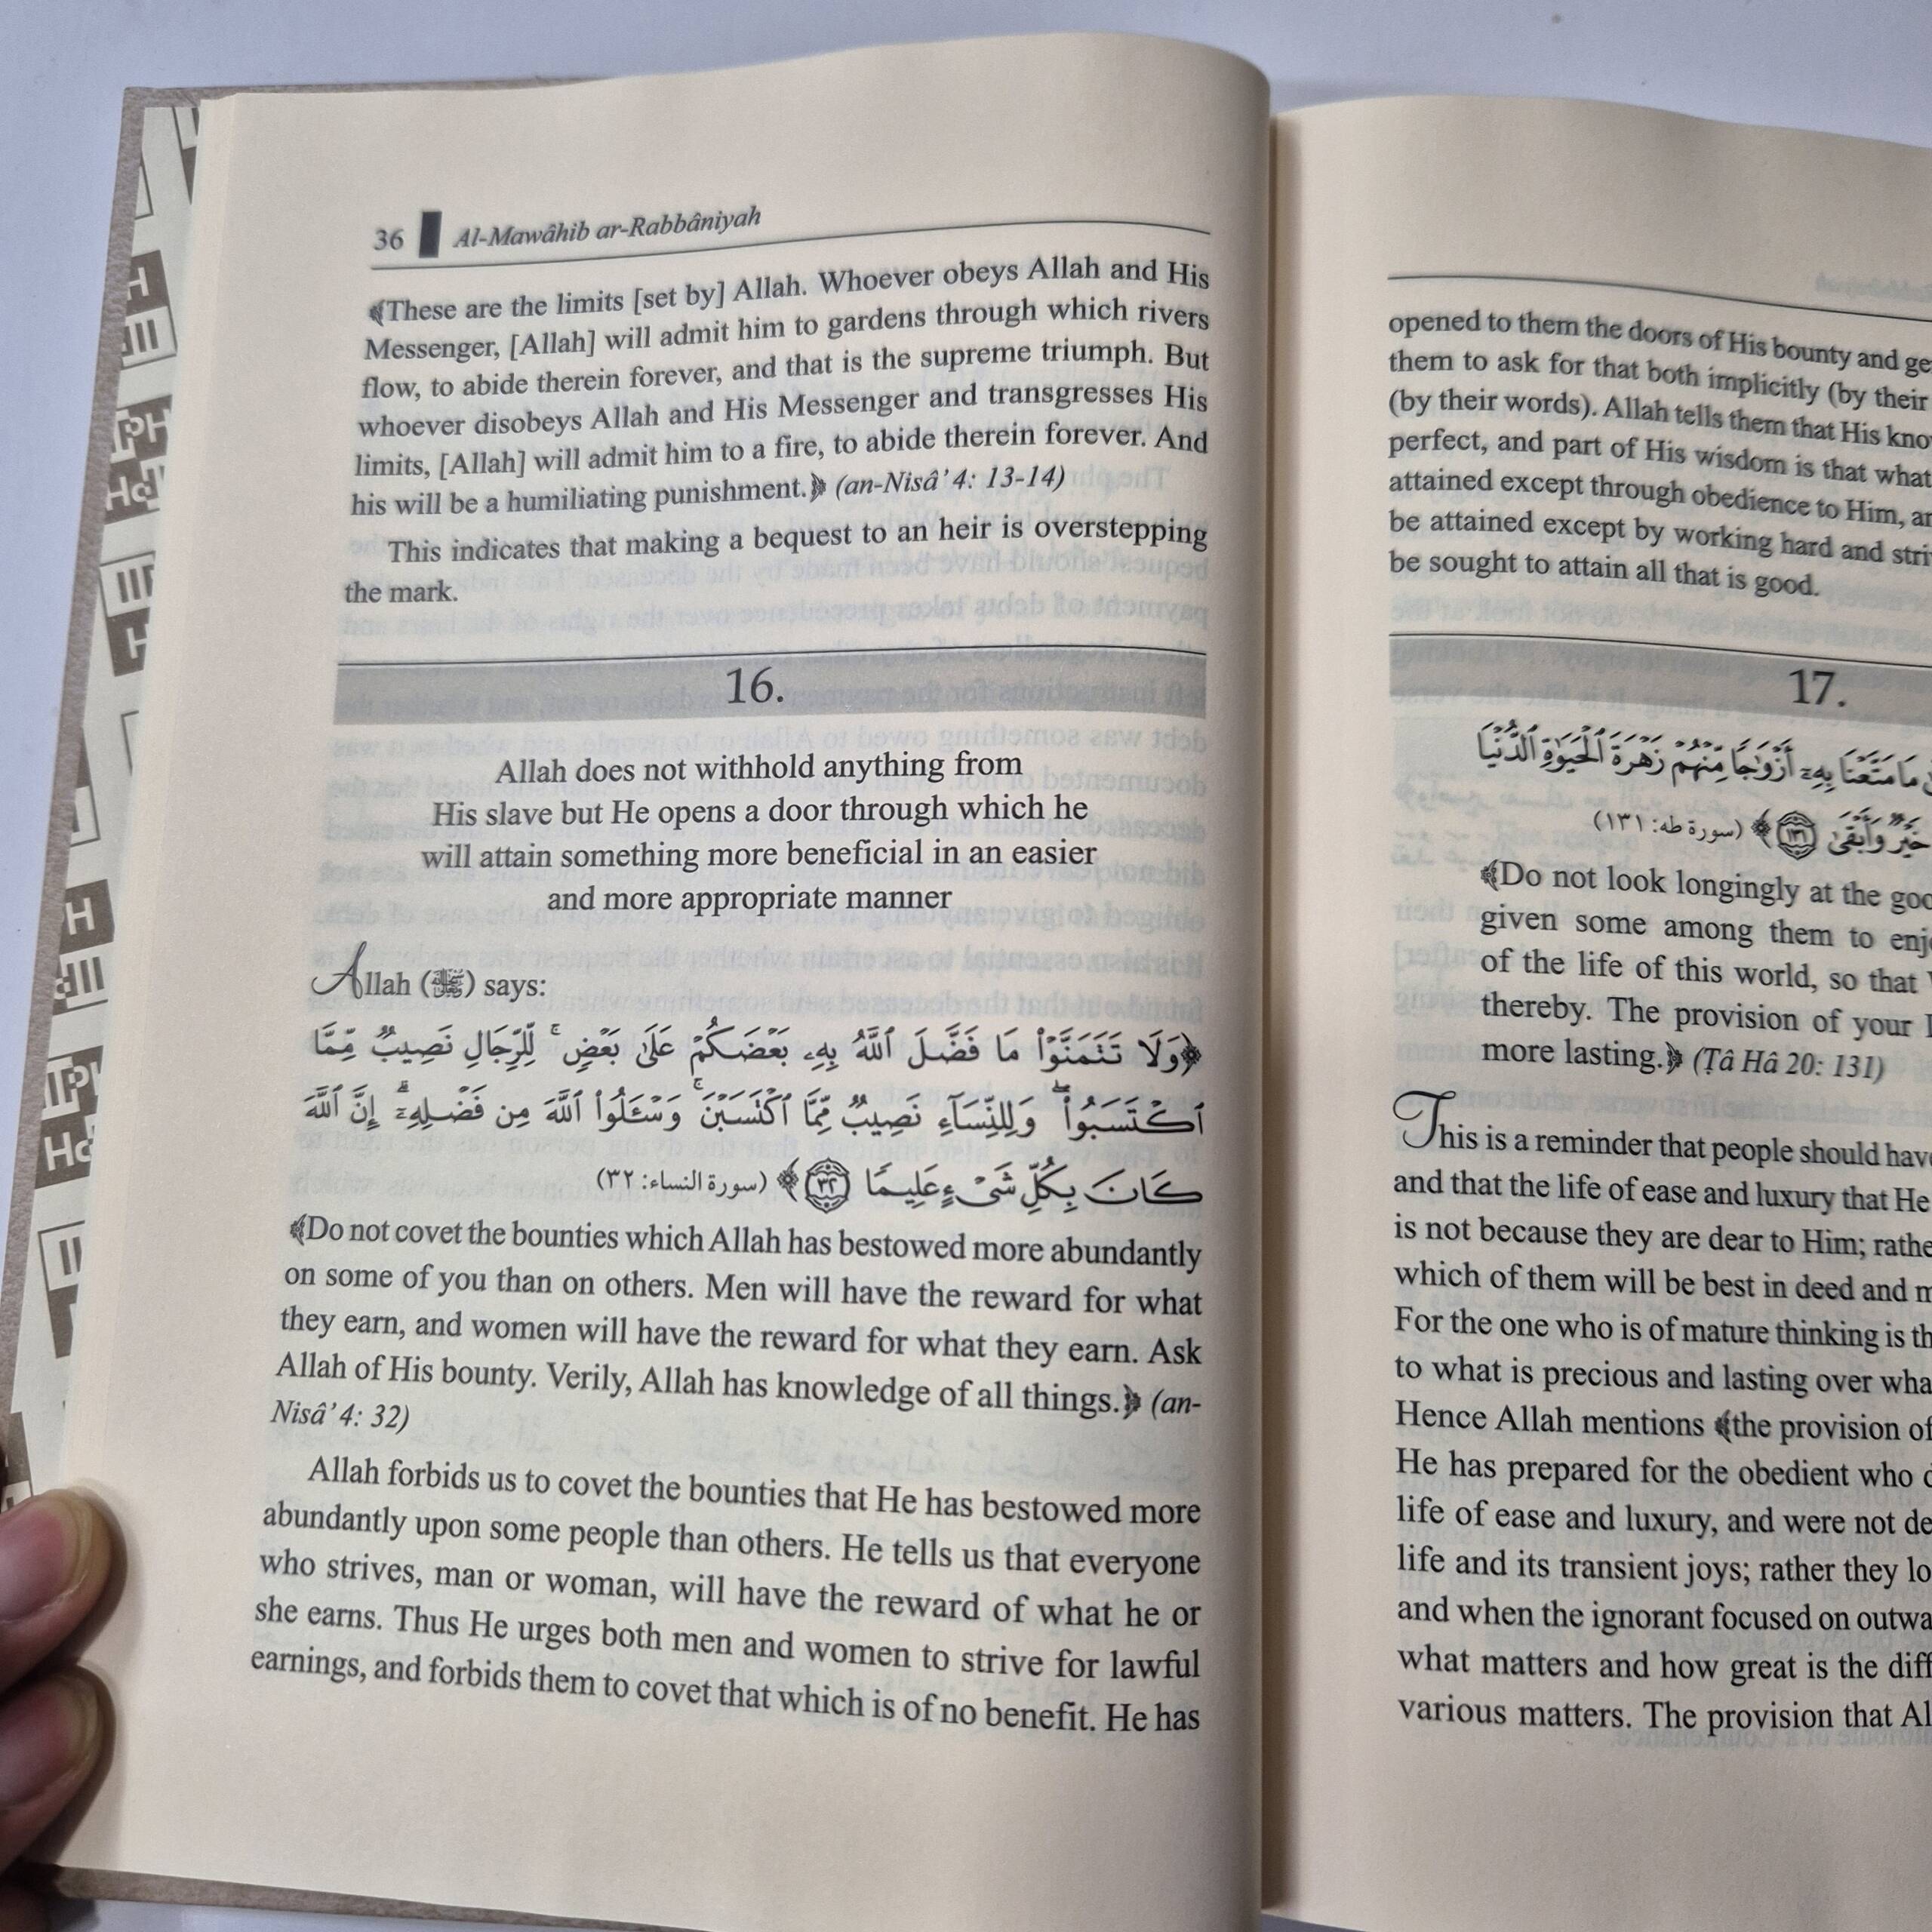 36 Al-Mawâhib ar-Rabbâniyah
﴾These are the limits [set by] Allah. Whoever obeys Allah and His
Messenger, [Allah] will admit him to gardens through which rivers
flow, to abide therein forever, and that is the supreme triumph. But
whoever disobeys Allah and His Messenger and transgresses His
limits, [Allah] will admit him to a fire, to abide therein forever. And
his will be a humiliating punishment.﴿ (an-Nisâ’ 4: 13-14)
This indicates that making a bequest to an heir is overstepping
the mark.
16.
Allah does not withhold anything from
His slave but He opens a door through which he
will attain something more beneficial in an easier
and more appropriate manner
Allah (ﷻ) says:
﴿وَلَا تَتَمَنَّوْا۟ مَا فَضَّلَ ٱللَّهُ بِهِۦ بَعْضَكُمْ عَلَىٰ بَعْضٍ ۚ لِّلرِّجَالِ نَصِيبٌ مِّمَّا
ٱكْتَسَبُوا۟ ۖ وَلِلنِّسَآءِ نَصِيبٌ مِّمَّا ٱكْتَسَبْنَ ۚ وَسْـَٔلُوا۟ ٱللَّهَ مِن فَضْلِهِۦٓ ۗ إِنَّ ٱللَّهَ
كَانَ بِكُلِّ شَىْءٍ عَلِيمًا ٣٢﴾ (سورة النساء: ٣٢)
﴾Do not covet the bounties which Allah has bestowed more abundantly
on some of you than on others. Men will have the reward for what
they earn, and women will have the reward for what they earn. Ask
Allah of His bounty. Verily, Allah has knowledge of all things.﴿ (an-
Nisâ’ 4: 32)
Allah forbids us to covet the bounties that He has bestowed more
abundantly upon some people than others. He tells us that everyone
who strives, man or woman, will have the reward of what he or
she earns. Thus He urges both men and women to strive for lawful
earnings, and forbids them to covet that which is of no benefit. He has
opened to them the doors of His bounty and
them to ask for that both implicitly (by their
(by their words). Allah tells them that His
perfect, and part of His wisdom is that what
attained except through obedience to Him,
be attained except by working hard and
be sought to attain all that is good.
17.
مَا مَتَّعْنَا بِهِۦٓ أَزْوَٰجًا مِّنْهُمْ زَهْرَةَ ٱلْحَيَوٰةِ ٱلدُّنْيَا
خَيْرٌ وَأَبْقَىٰ ١٣١﴾ (سورة طه: ١٣١)
﴾Do not look longingly at the
given some among them to
of the life of this world, so that
thereby. The provision of your
more lasting.﴿ (Ṭâ Hâ 20: 131)
This is a reminder that people should
and that the life of ease and luxury that He
is not because they are dear to Him;
which of them will be best in deed and
For the one who is of mature thinking is
to what is precious and lasting over
Hence Allah mentions ﴾the provision of
He has prepared for the obedient who
life of ease and luxury, and were not
life and its transient joys; rather they
and when the ignorant focused on
what matters and how great is the
various matters. The provision that